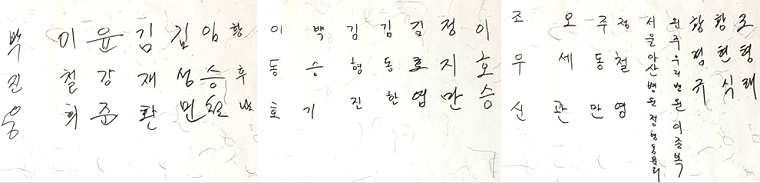 박진웅
이철희
윤강준
김재환
김성민
임승철
황후
이동호
백승기
김형진
김동한
김로엽
정지만
이호승
조우신
오세관
주동만
정철영
서울아산병원 정형동문회
원주우리병원 이중복
황필규
황현식
조형래